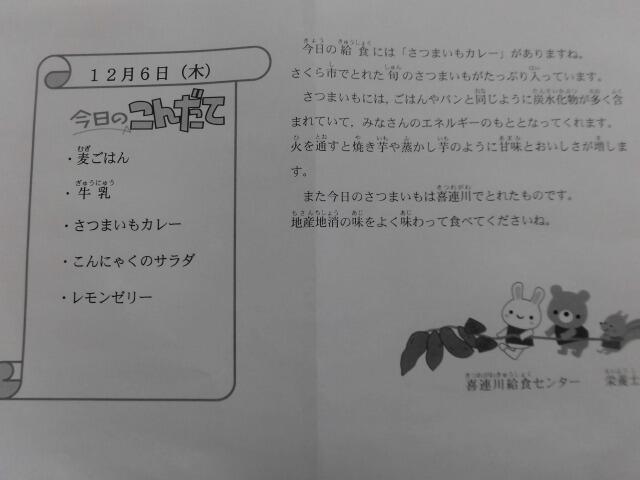 12月6日（木）
今日のこんだて
・麦ごはん
・牛乳
・さつまいもカレー
・こんにゃくのサラダ
・レモンゼリー
今日の給食には「さつまいもカレー」がありますね。
さくら市でとれた旬のさつまいもがたっぷり入っています。
さつまいもには、ごはんやパンと同じように炭水化物が多く含
まれていて、みなさんのエネルギーのもととなってくれます。
火を通すと焼き芋や蒸かし芋のように甘味とおいしさが増しま
す。
また今日のさつまいもは喜連川でとれたものです。
地産地消の味をよく味わって食べてくださいね。
喜連川給食センター　栄養士